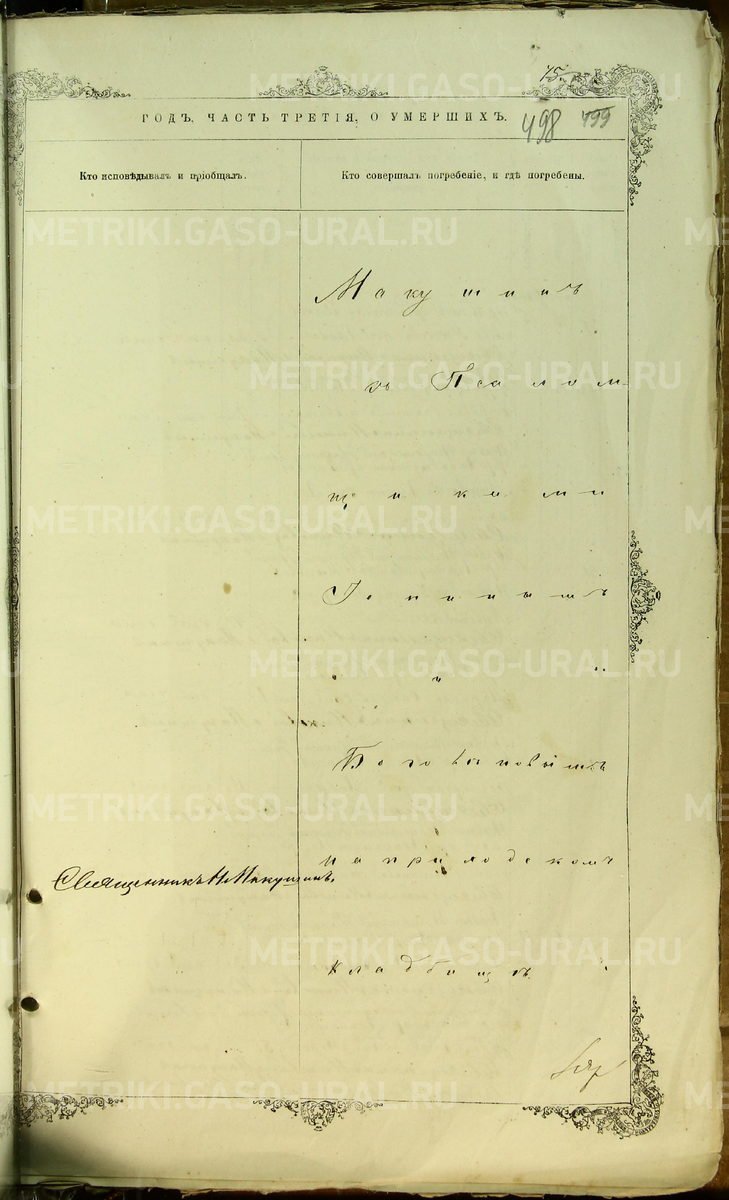 75.
ГОДЪ, ЧАСТЬ ТРЕТІЯ, О УМЕРШИХЪ.
498 499
Кто исповѣдывалъ и пріобщалъ.
Кто совершалъ погребеніе, и гдѣ погребены.
Макушинъ
съ Псалом-
щиками
и
на приходскомъ
Священникъ Н Макушинъ.
кладбищѣ.
METRIKI.GASO-URAL.RU